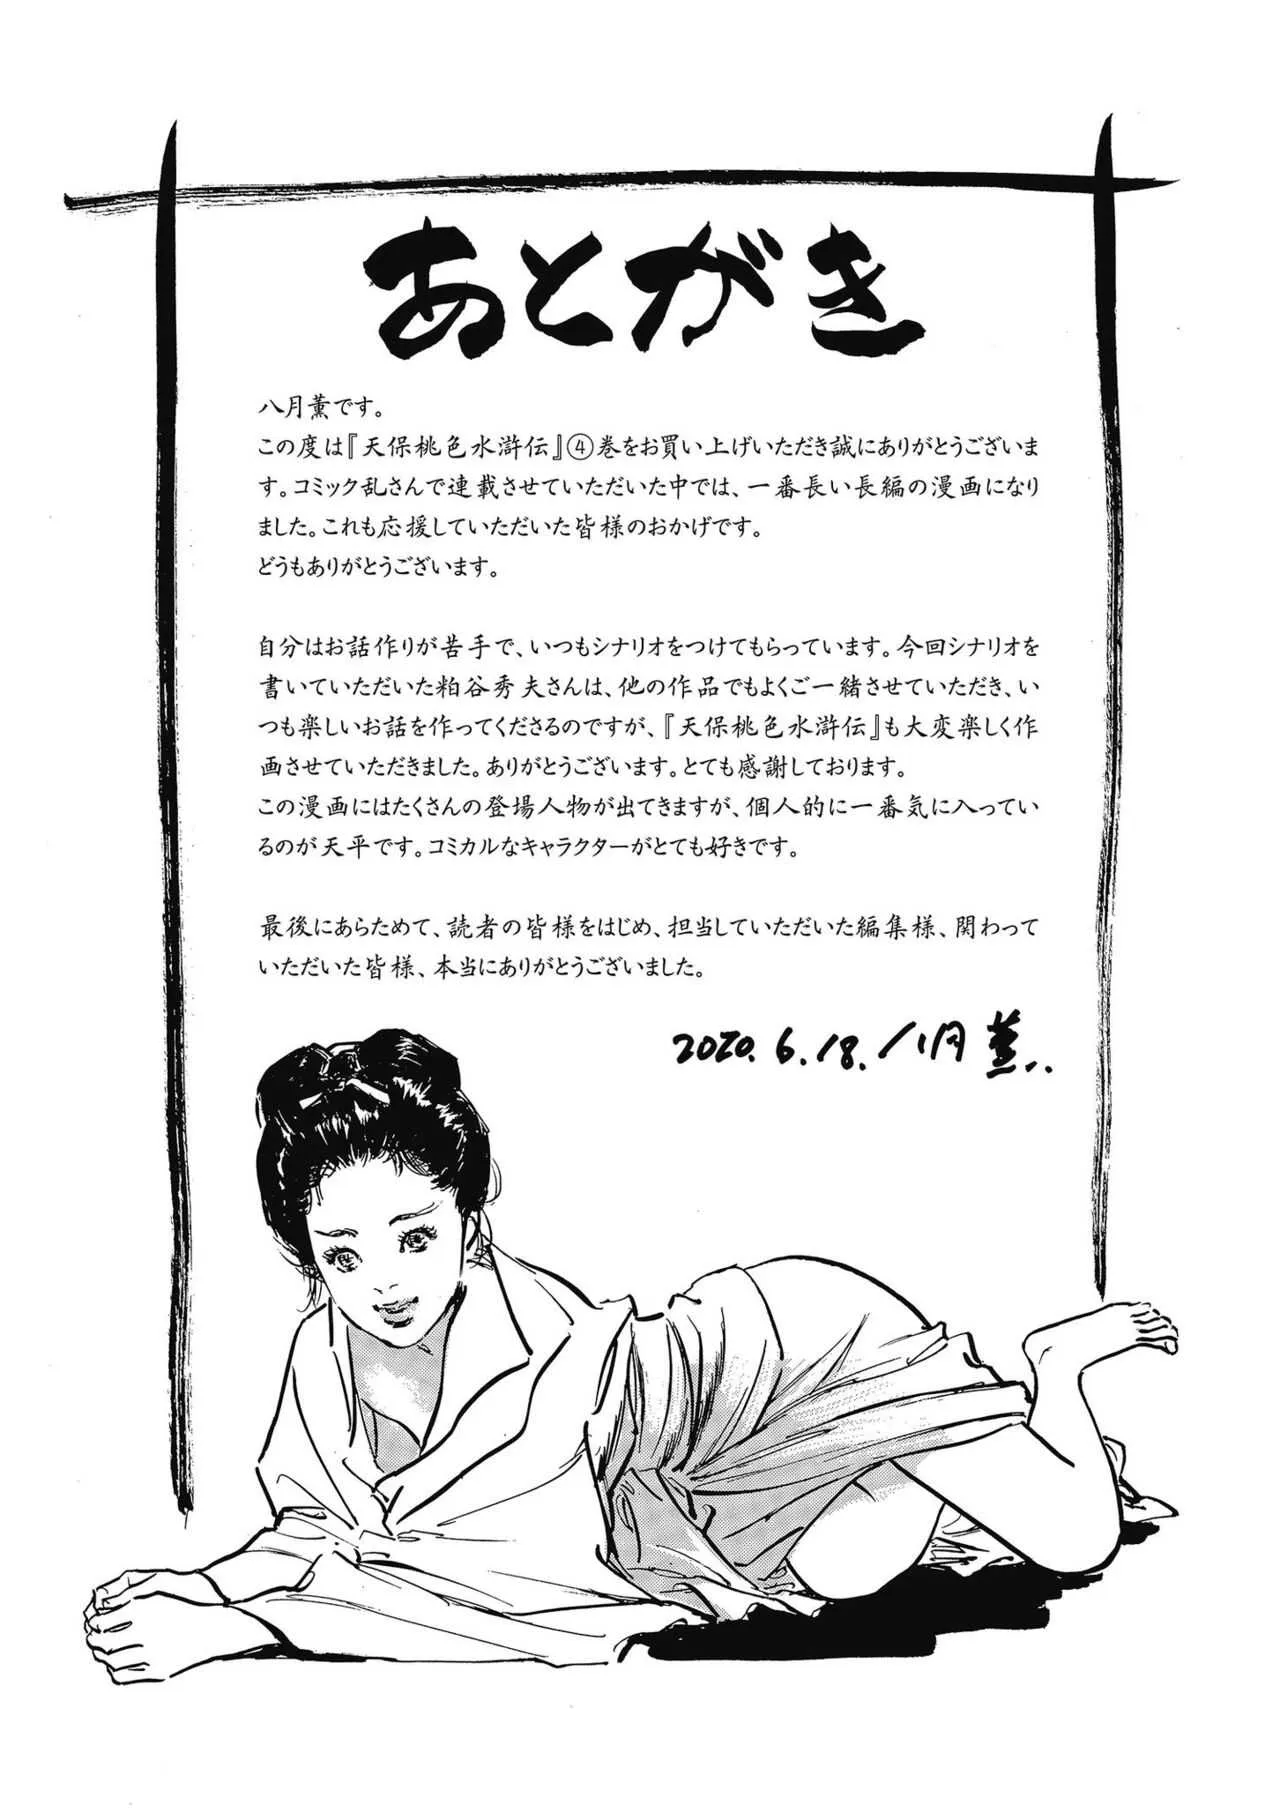 あとがき
八月薫です。
この度は『天保桃色水滸伝』④巻をお買い上げいただき誠にありがとうございま
す。コミック乱さんで連載させていただいた中では、一番長い長編の漫画になり
ました。これも応援していただいた皆様のおかげです。
どうもありがとうございます。
自分はお話作りが苦手で、いつもシナリオをつけてもらっています。今回シナリオを
書いていただいた粕谷秀夫さんは、他の作品でもよくご一緒させていただき、い
つも楽しいお話を作ってくださるのですが、『天保桃色水滸伝』も大変楽しく作
画させていただきました。ありがとうございます。とても感謝しております。
この漫画にはたくさんの登場人物が出てきますが、個人的に一番気に入ってい
るのが天平です。コミカルなキャラクターがとても好きです。
最後にあらためて、読者の皆様をはじめ、担当していただいた編集様、関わって
いただいた皆様、本当にありがとうございました。
2020.6.18.八月薫..